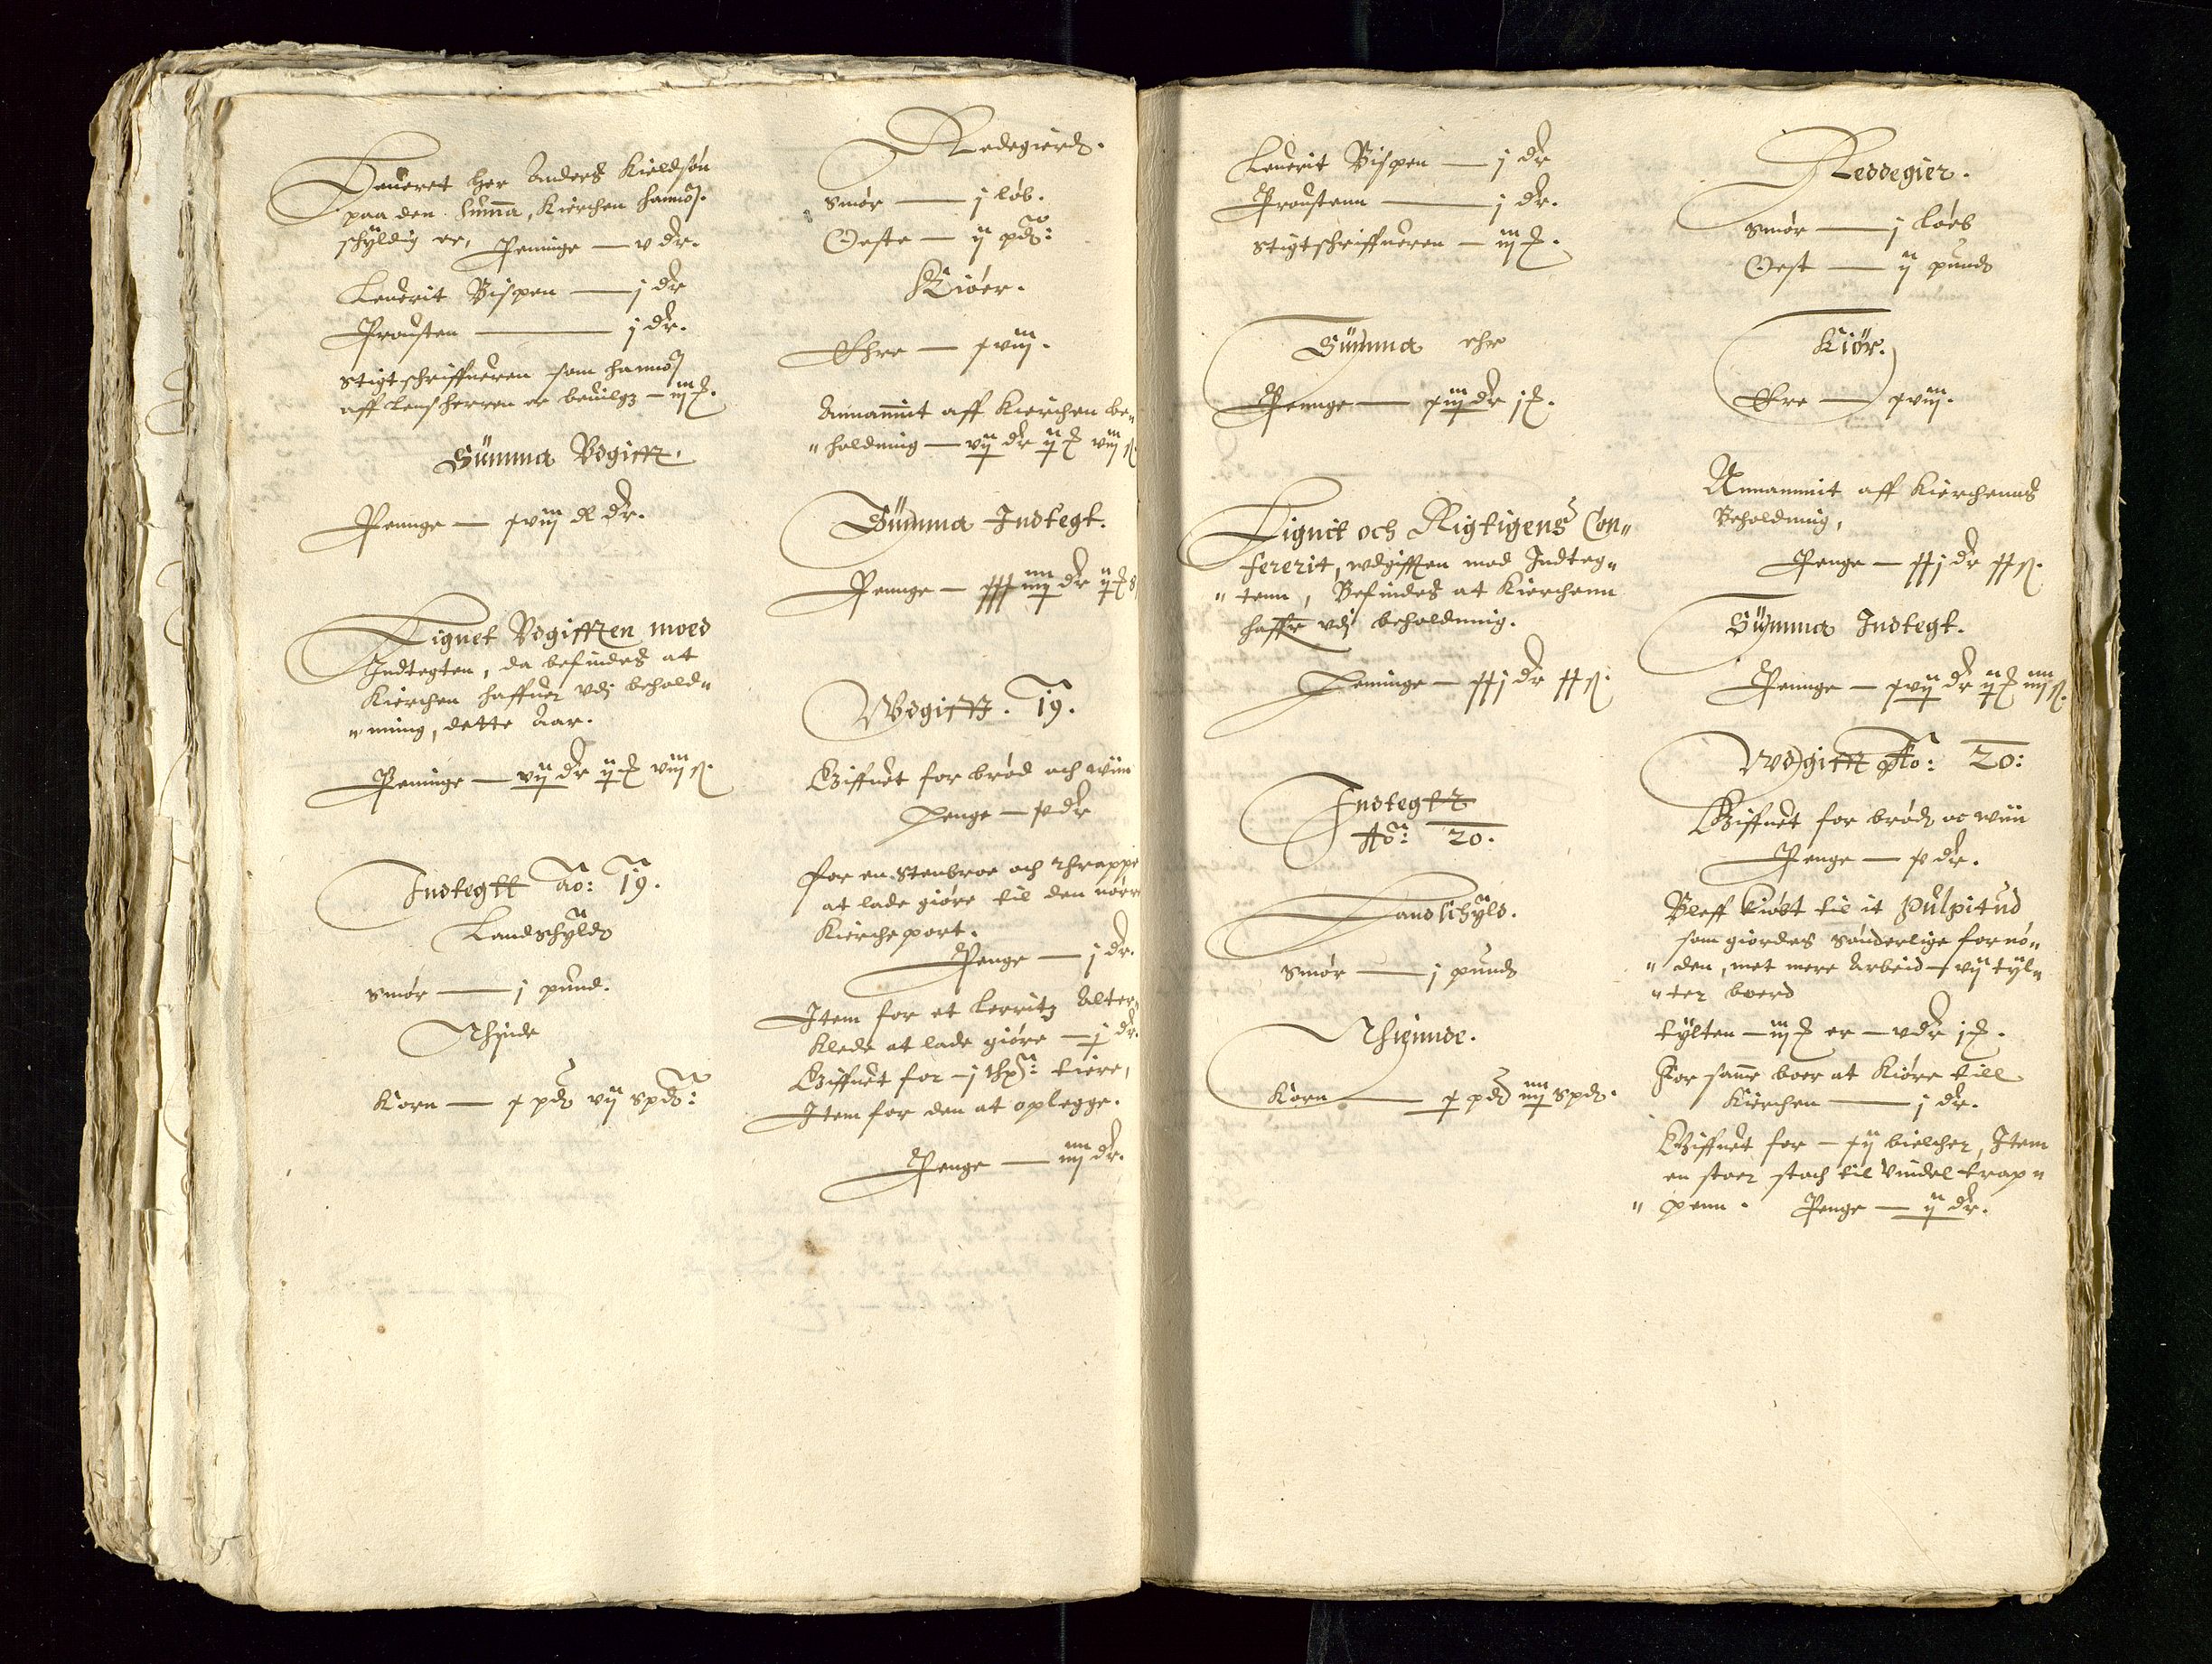 Leueret her Anders Kieldsøn
paa den Summa, Kierchen hannom
schyldig er, Peninge — v dr.
Leuerit Bispen — j dr
Prousten — j dr.
Stigtschriffueren som hannom
aff Lensherren er beuilget — iij
Summa Vdgifft.
Penge — xviij dr.
Lignet Vdgifften moed
Indtegten, da befindes at
Kierchen haffuer vdj behold"
"ning, dette Aar.
Peninge — vij dr ij viij s.
Indtegtt Ao: 19.
Landschyld
Smør — j pund.
Thiende
Korn — x pd vij spd:
Redegierd.
Smør — j løb.
Oeste — ij pd:
Kiøer.
Ehre — xviij.
Annammit aff Kierchen be"
"holdning — vij dr ij viij s
Summa Indtegt.
Penge — xxxiiij dr ij
Vdgifft. 19.
Giffuet for brød och wiin
Penge — dr
for en Stenbroe och thrappe
at lade giøre til den nøer
Kircheport.
Penge — j dr.
Item for et Lerritz Alter"
Klede at lade giøre — j dr.
Giffuet for j tiere,
Item for den at oplegge.
Penge — iiij dr.
Leuerit Bispen — j dr
Proustenn — j dr.
Stigtschriffueren — iij
Summa ehr
Penge — xiij dr j
Lignit och Rigtigens Con"
fererit, vdgifften mod Indteg"
"tenn, Befindes at Kierchenn
haffr vdj beholdning.
Peninge — xxj dr xx s.
Indtegtt
Ao: 20.
Landschyld.
Smør — j pund
Thiende.
Korn — x pd iiij spd.
Reddegier.
Smør — j Løeb
Oest — ij pund
Kiør.
Ere — xviij.
Annammit aff Kierchens
Beholdning,
Penge — xxj dr xx s.
Summa Indtegt.
Penge — xvij dr ij iiij s.
Vdgifft Ao: 20:
Giffuet for brød oc wiin
Penge — dr.
Bleff kiøbt til it Pulpitud
som giordes sønderlige fornø"
"den, met mere Arbeid — vij tyl"
"ter boerd
tylten — iij er — v dr j
For samme boer at Kiøre till
Kierchen — j dr.
Giffuet for — xij bielcher, Item
en stoer stoch til Vindel trap"
"penn. Penge — ij dr.